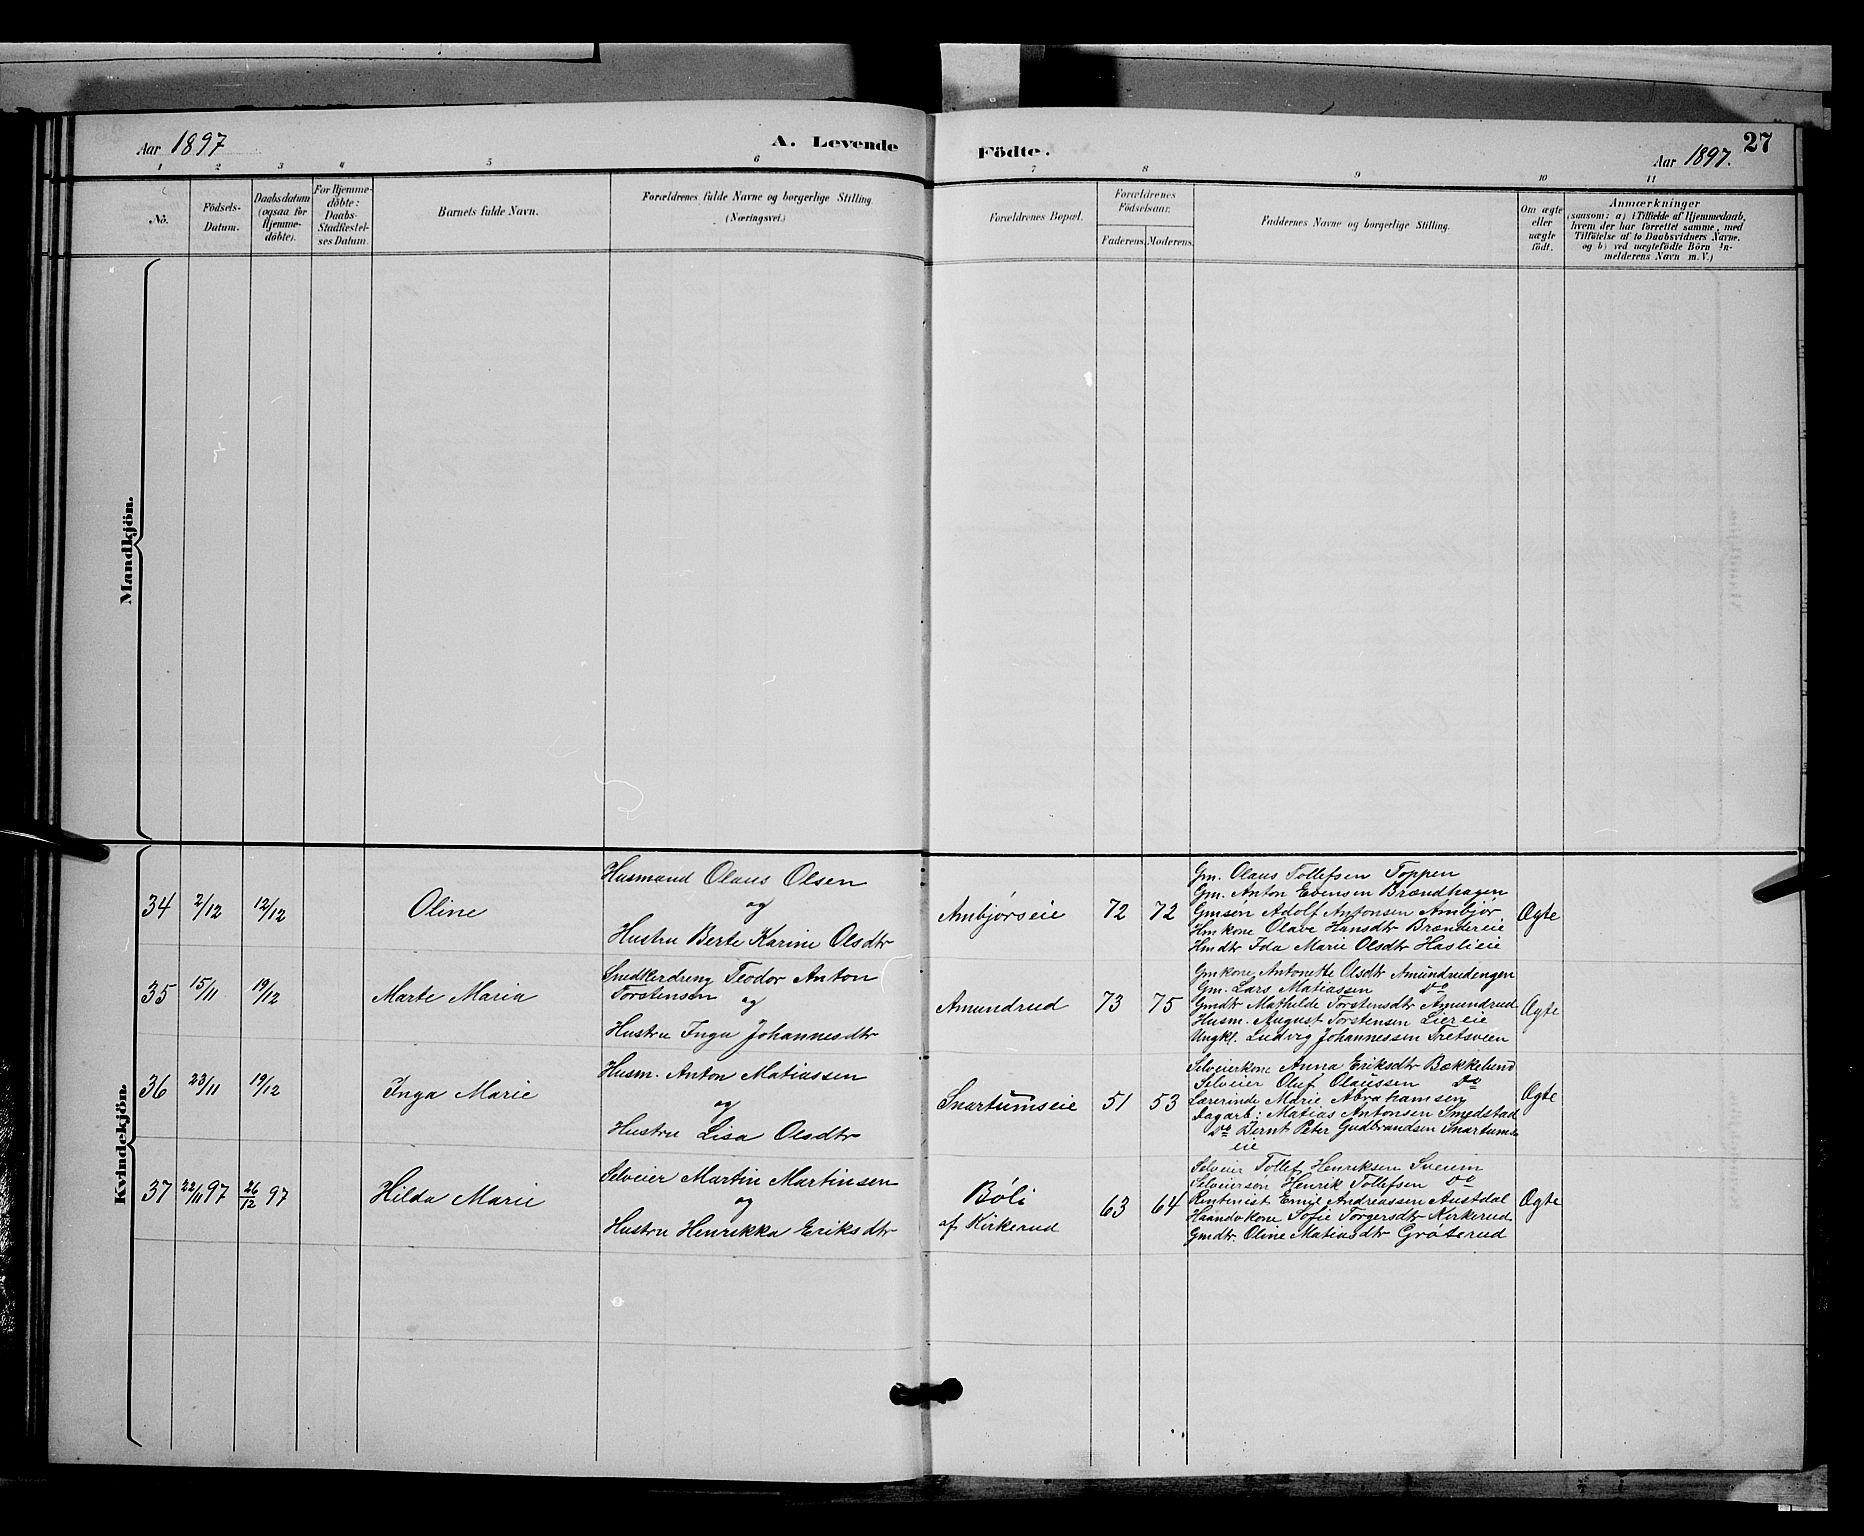 Aar 1897
A. Levende
Födte.
Aar 1897.
27
1 2 3 4 5 6 7 8 9 10 11
No.
Födsels-
Datum.
Daabsdatum
(ogsaa for
Hjemme-
döbte).
For Hjemme-
döbte:
Daabs-
Stadfæstel-
ses Datum.
Barnets fulde Navn.
Forældrenes fulde Navne og borgerlige Stilling
(Næringsvei.)
Forældrenes Bopæl.
Forældrenes
Födselsaar.
Faderens. Moderens.
Faddernes Navne og borgerlige Stilling.
Om ægte
eller
uægte
födt.
Anmærkninger
(saasom: a) i Tilfælde af Hjemmedaab,
hvem der har forrettet samme, med
Tilföielse af to Daabsvidners Navne.
og b) ved uægtefödte Börn An-
melderens Navn m. V.)
Mandkjön.
Kvindekjön.
34 2/12 12/12 Oline
Husmand Olaus Olsen
og
Hustru Berte Karine Olsdtr
Ambjørseie 72 72
Gm. Olaus Tollefsen Toppen
Gm. Anton Evensen Brændhagen
Gmsøn Adolf Antonsen Ambjør
Hmkone Olave Hansdtr Brændereie
Hmdtr Ida Marie Olsdtr Haslieie
Ægte
35 15/11 19/12 Marte Maria
Smedlerdreng Teodor Anton
Torstensen og
Hustru Inga Johannesdtr
Amundrud 73 75
Gmkone Antonette Olsdtr Amundrudengen
Gm. Lars Matiassen Do
Gmdtr Mathilde Torstensdtr Amundrud
Husm. August Torstensen Liereie
Ungkl. Ludvig Johannessen Tretsveen
Ægte
36 23/11 19/12 Inga Marie
Husm. Anton Matiassen
og
Hustru Lisa Olsdtr
Snartumseie 51 53
Selveierkone Anna Eriksdtr Bækkelund
Selveier Oluf Olaussen Do
Lærerinde Marie Abrahamsen
Dagarb: Matias Antonsen Smedstad
Do Bernt Peter Gudbrandsen Snartums
eie
Ægte
37 22/11 97 26/12 97 Hilda Marie
Selveier Martin Martinsen
og
Hustru Henrikka Eriksdtr
Bøli
af Kirkerud
63 64
Selveier Tollef Henriksen Sveum
Selveiersøn Henrik Tollefsen Do
Rentenist Emil Andreassen Austdal
Haandvkone Sofie Torgersdtr Kirkerud
Gmdtr. Oline Matiasdtr Grøterud
Ægte